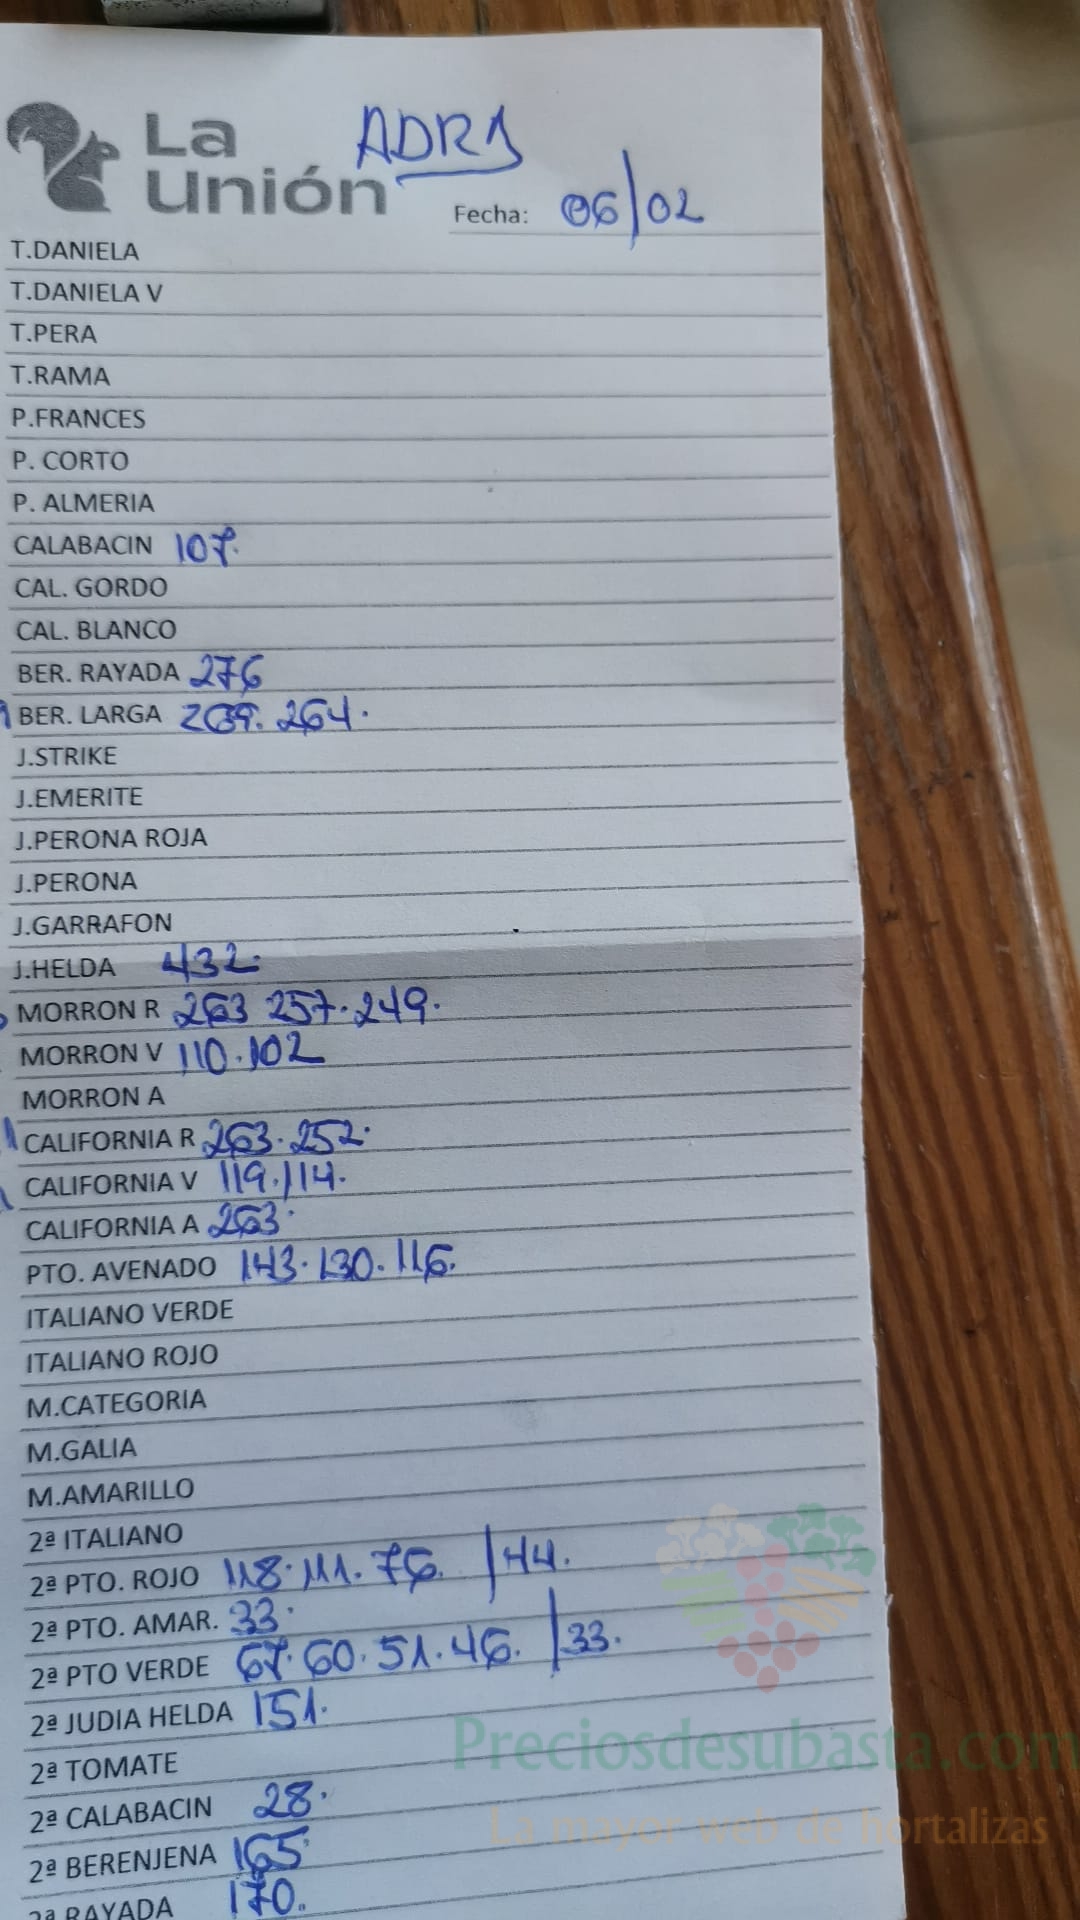 La
Unión
ADRA
Fecha: 06/02
T.DANIELA
T.DANIELA V
T.PERA
T.RAMA
P.FRANCES
P. CORTO
P. ALMERIA
CALABACIN 107.
CAL. GORDO
CAL. BLANCO
BER. RAYADA 276
BER. LARGA 269. 264.
J.STRIKE
J.EMERITE
J.PERONA ROJA
J.PERONA
J.GARRAFON
J.HELDA 432.
MORRON R 263 257. 249.
MORRON V 110.102
MORRON A
CALIFORNIA R 263. 252.
CALIFORNIA V 119.114.
CALIFORNIA A 263.
PTO. AVENADO 143. 130. 116.
ITALIANO VERDE
ITALIANO ROJO
M.CATEGORIA
M.GALIA
M.AMARILLO
2ª ITALIANO
2ª PTO. ROJO 118. 111. 76. /44.
2ª PTO. AMAR. 33.
2ª PTO VERDE 67. 60. 51. 46. /33.
2ª JUDIA HELDA 151.
2ª TOMATE
2ª CALABACIN 28.
2ª BERENJENA 165.
2ª RAYADA 170.
Preciosdesubasta.com
La mayor web de hortalizas